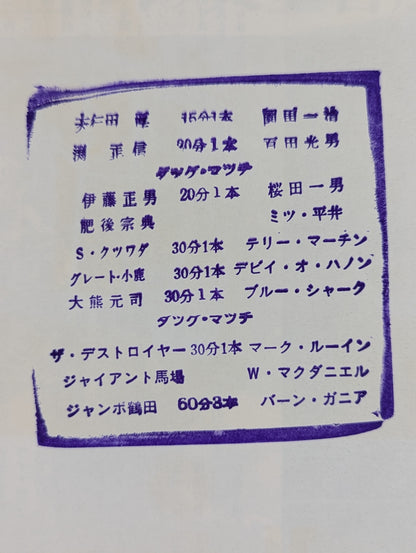 大仁田 厚 15分1本 薗田一治
渕 正信 20分1本 百田光男
タッグ・マッチ
伊藤正男 20分1本 桜田一男
肥後宗典 ミツ・平井
S・クツワダ 30分1本 テリー・マーチン
グレート・小鹿 30分1本 デビイ・オ・ハノン
大熊元司 30分1本 ブルー・シャーク
タッグ・マッチ
ザ・デストロイヤー 30分1本 マーク・ルーイン
ジャイアント馬場 W・マクダニエル
ジャンボ鶴田 60分3本 バーン・ガニア